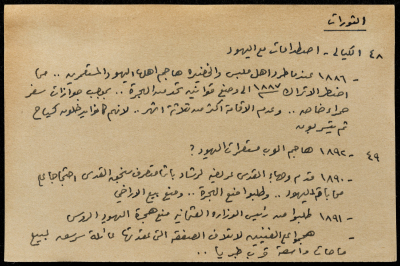 الثورات
٤٨ الكيالي - اصطدامات مع اليهود
- ١٨٨٦ عندما طرد اهل ملبس والخضيره هاجم اهلها اليهود والمستعمرين .. مما
اضطر الاتراك ١٨٨٧ الى وضع قوانين تحد من الهجرة .. بموجب جوازات سفر
حمراء خاصه .. وعدم الاقامة اكثر من ثلاثة اشهر .. لانهم كانوا يدخلون كسياح
ثم يتسربون
٤٩ - ١٨٩٢ هاجم العرب مستعمرات اليهود ؟
- ١٨٩٠ قدم وجهاء القدس عريضه لرشاد باشا متصرف سنجق القدس احتجاجا على
محاباته لليهود .. وطلبوا منع الهجرة .. ومنع بيع الاراضي
- ١٨٩١ طلبوا من رئيس الوزاره العثمانيه منع هجرة اليهود الروس
هجوم على الصفقة التي عقدتها عائلة سرسق لبيع
مساحات واسعة قرب طبريا ..